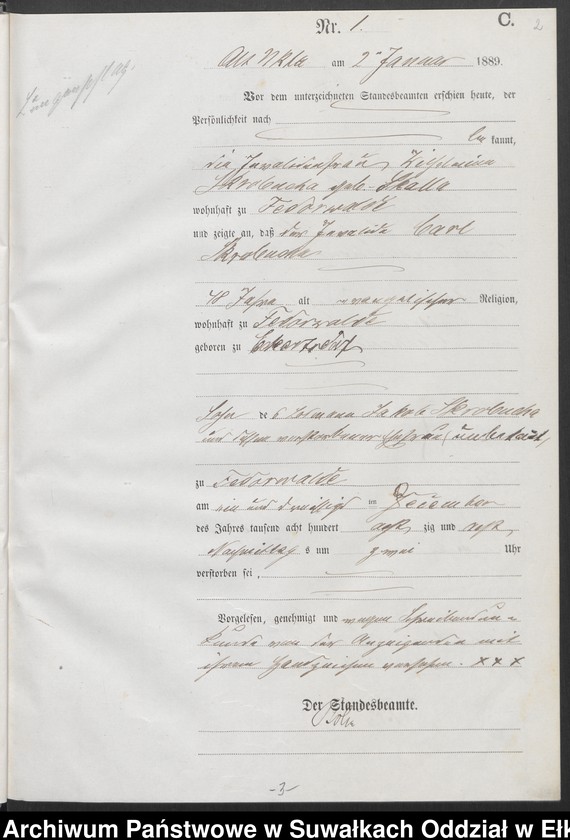 C.
2
Nr. 1.
Alt Ukta am 2 Januar 1889.
Vor dem unterzeichneten Standesbeamten erschien heute, der
Persönlichkeit nach
be kannt,
die Invalidenfrau, Wilhelmine
Skrobucha geb. Skalla
wohnhaft zu Fedorwalde
und zeigte an, daß der Invalide Carl
Skrobucha
48 Jahre alt evangelischer Religion,
wohnhaft zu Fedorwalde
geboren zu Eckertsdorf
Sohn des Jakob Skrobucha
und dessen verstorbener Ehefrau (unbekannt)
zu Fedorwalde
am ein und dreißigst en December
des Jahres tausend acht hundert acht zig und acht
Nachmittag s um zwei Uhr
verstorben sei,
Vorgelesen, genehmigt und wegen Schreibensun-
kunde von der Anzeigenden mit
ihrem Handzeichen versehen. x x x
Der Standesbeamte.
-3-
Archiwum Państwowe w Suwałkach Oddział w Ełk